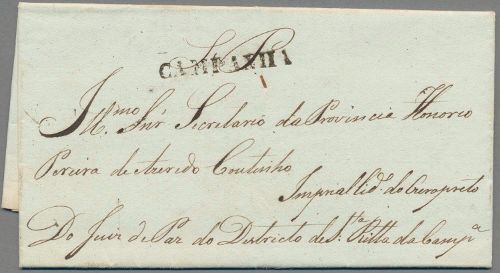 S. P.
CAMPANHA
Illmo Snr Secretario da Provincia Honorio
Pereira de Azeredo Coutinho
Imperial Cid.e do Ouropreto
Do Juiz de Paz do Districto de S.ta Ritta da Camp.a